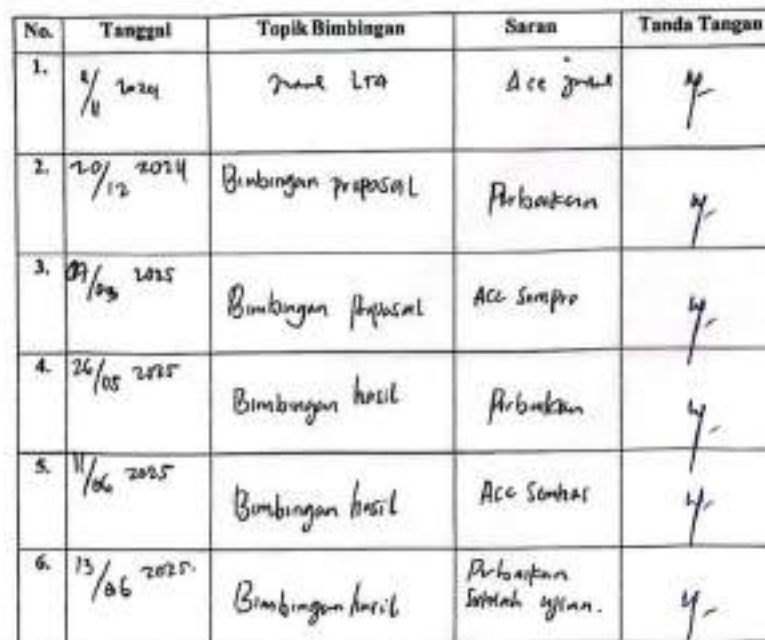 No. Tanggal Topik Bimbingan Saran Tanda Tangan
1. 2024 LTA Acc
2. 20/12 2024 Bimbingan proposal Perbaikan
3. 09/03 2025 Bimbingan proposal Acc Sempro
4. 26/05 2025 Bimbingan hasil Perbaikan
5. 11/06 2025 Bimbingan hasil Acc Semhas
6. 13/06 2025. Bimbingan hasil Perbaikan
setelah ujian.